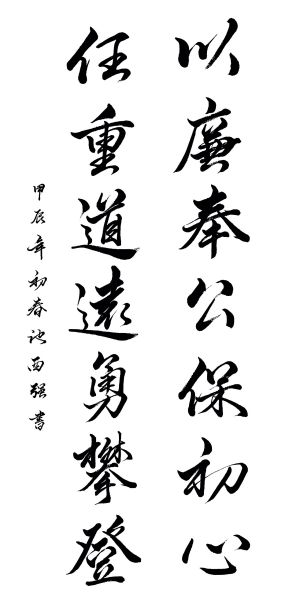 以廉奉公保初心
任重道遠勇攀登
甲辰年初春沈西强書